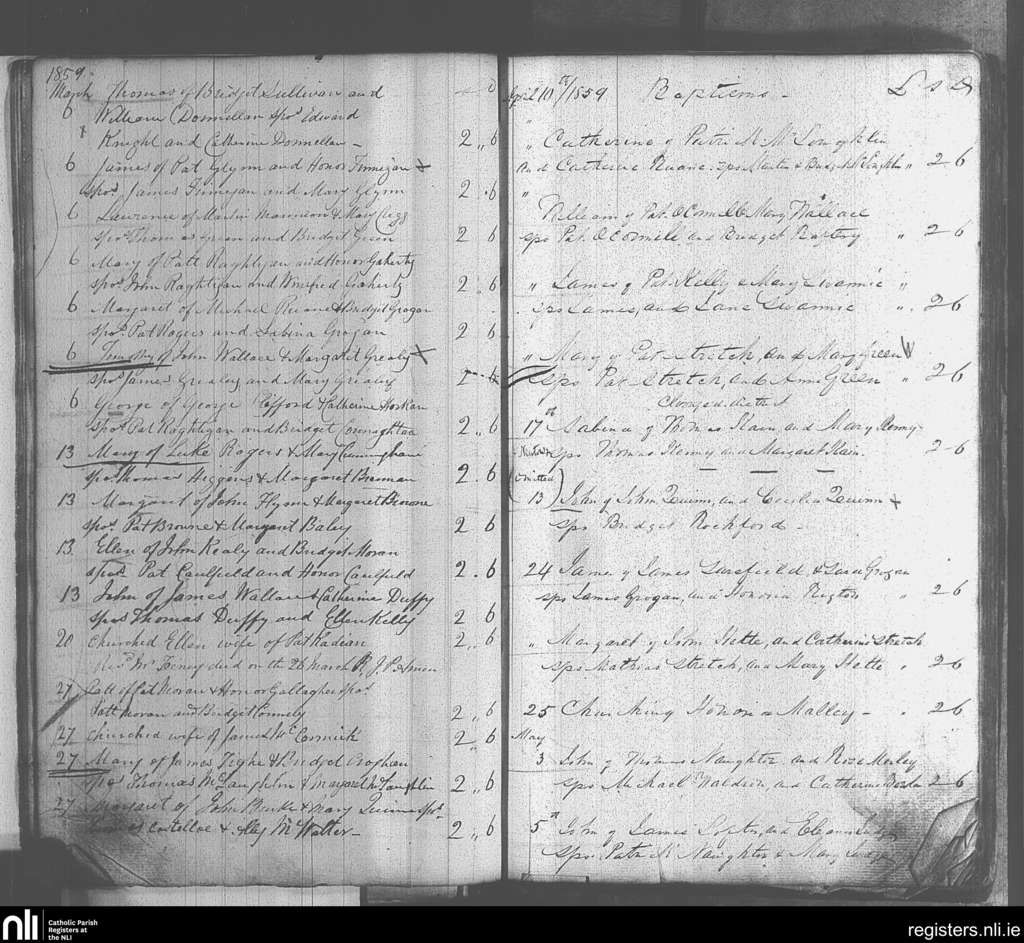 1859
March Thomas of Bridget Sullivan and
6 William Donnellan Spos Edward
Knight and Catherine Donnellan – 2 „ 6
6 James of Pat Glynn and Honor Finnegan +
Spos James Finnegan and Mary Glynn 2 . 6
6 Lawrence of Martin Mannion & Mary
Spos Thomas and Bridget 2 6
6 Mary of Patt Raghtigan and Honor Gaherty
Spos John Raghtigan and Winifred Gaherty 2 . 6
6 Margaret of Michael Ruane & Bridget Grogan
Spos Pat Rogers and Sabina Grogan 2 6
6 Timothy of John Wallace & Margaret Grealy +
Spos James Grealy and Mary Grealy 2 6
6 George of George Clifford & Catherine Horkan
Spos Pat Raghtigan and Bridget Connaghton 2 „ 6
13 Mary of Luke Rogers & Mary Cunningham
Spos Thomas Higgins & Margaret Brennan 2 . 6
13 Margaret of John Flynn & Margaret Browne
Spos Pat Browne & Margaret Boley 2 6
13 Ellen of John Kealy and Bridget Moran
Spos Pat Caulfield and Honor Caulfield 2 . 6
13 John of James Wallace & Catherine Duffy
Spos Thomas Duffy and Ellen Kelly 2 6
20 Churched Ellen wife of Pat 2 „ 6
Revd Mr died on the 26 March R. I. P. Amen
27 Patt of Pat Moran & Honor Gallagher Spos
Patt Moran and Bridget Connely 2 „ 6
27 Churched wife of James Mc Cormick 2 „ 6
27 Mary of James Tighe & Bridget Croghan
Spos Thomas McLaughlin & Margaret McLaughlin 2 „ 6
27 Margaret of John Burke & Mary Quinn Spos
Costelloe & Mc Walter – 2 „ 6
April 10th/1859 Baptisms – £ s D
„ Catherine of Patrick McLoughlin
and Catherine Ruane. spos Martin & Bridget McLoughlin „ 2 6
„ William of Pat. O'Connell & Mary Wallace
spos Pat. O'Connell and Bridget Raftery „ 2 6
„ James of Pat. Kelly & Mary „
spos James, and Jane „ 2 6
„ Mary of Pat Stretch, and Mary Green
spos Pat Stretch, and Anne Green „ 2 6
17th Sabina of Thomas Kain, and Mary Henry
spos Thomas Henry and Margaret Kain. 2 6
(omitted)
13 John of John Quinn, and Cecilia Quinn +
spos Bridget Rochford –
24 Jane of James & Sara Grogan
spos James Grogan, and Honoria „ 2 6
„ Margaret of John Hette, and Catherine Stretch
spos Mathias Stretch, and Mary Hette „ 2 6
25 Churching Honoria Malley – „ 2 6
May
3 John of Thomas Naughton and Rose Morley
spos Michael Waldron and Catherine 2 6
5th John of James
spos Patrick Naughton & Mary
nli Catholic Parish
Registers at
the NLI
registers.nli.ie